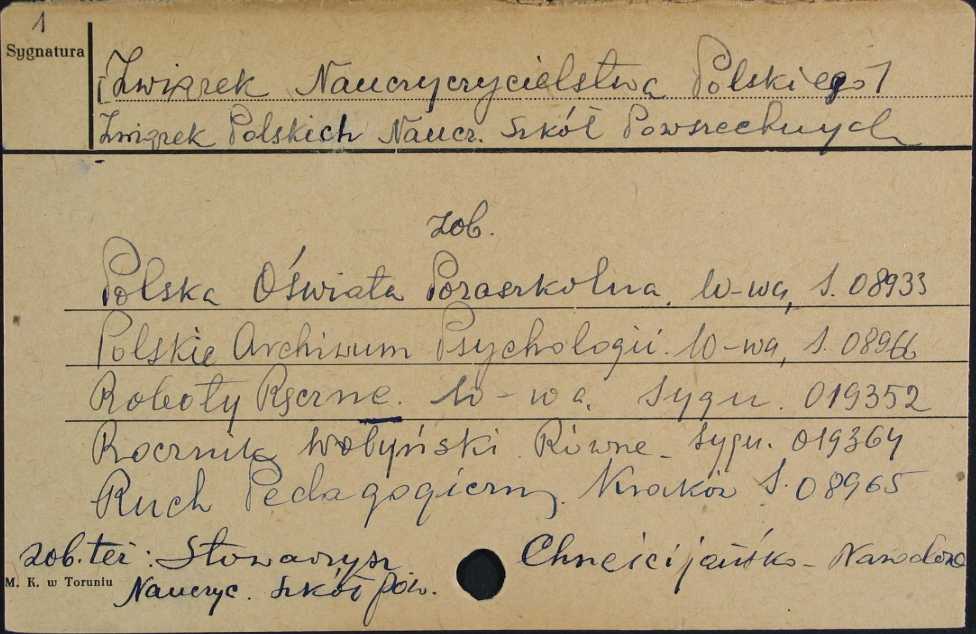 1
Sygnatura
[Związek Nauczyczycielstwa Polskiego]
Związek Polskich Naucz. Szkół Powszechnych
zob.
Polska Oświata Pozaszkolna. W-wa, S. 08933
Polskie Archiwum Psychologii. W-wa, S. 08966
Roboty Ręczne. W-wa. Sygn. 019352
Rocznik Wołyński. Równe - Sygn. 019364
Ruch Pedagogiczny. Kraków S. 08965
zob. też: Stowarzysz Chneścijańsko-Narodowe
M. K. w Toruniu
Nauczyc. Szkół pow.